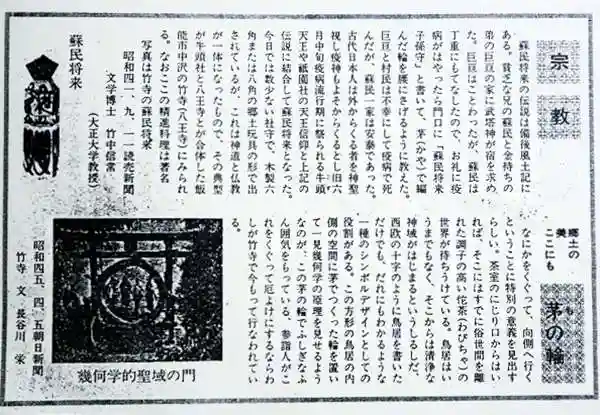 宗教
蘇民将来の伝説は備後風土記に
ある。貧乏な兄の蘇民と金持ちの
弟の巨旦の家に武塔神が宿を求め
た。巨旦はことわったが、蘇民は
丁重にもてなしたので、お礼に疫
病がはやったら門口に「蘇民将来
子孫守」と書いて、茅(かや)で編
んだ輪を腰にさげるように教えた。
巨旦と村民は不幸にして疫病で死
んだが、蘇民一家は安泰であった。
古代日本人は外からくる者を神聖
視し疫神もよそからくるとし旧六
月中旬疫病流行期に祭られる牛頭
天王や祇園社の天王信仰と上記の
伝説に結合して蘇民将来となった。
今日では数少ない社守で、木製六
角または八角の郷土玩具の形で出
されているが、これは神道と仏教
が一体になったもので、その典型
が牛頭社と八王寺とが合体した飯
能市中沢の竹寺(八王寺)にみられ
る。なおここの精進料理は著名
写真は竹寺の蘇民将来
昭和四一、九、一一読売新聞
文学博士 竹中信常
(大正大学教授)
蘇民将来
郷土の
美
ここにも
茅の輪
なにかをくぐって、向側へ行く
ということに特別の意義を見出す
らしい。茶室のにじり口からはい
れば、そこにはすでに俗世間を離
れた調子の高い侘茶(わびちゃ)の
世界が待ちうけている。鳥居はい
うまでもなく、そこからは清浄な
神域がはじまるというしるしだ。
西欧の十字のように鳥居を書いた
だけでも、だれにもわかるような
一種のシンボルデザインとしての
役割がある。この方形の鳥居の内
側の空間に茅でつくった輪を置い
て一見幾何学の原理を見せるよう
なのが、この茅の輪でふしぎなふ
ん囲気をもっている。参詣人がこ
れをくぐって厄よけにするならわ
しが竹寺で今もって行なわれてい
る。
昭和四五、四、五朝日新聞
竹寺 文 長谷川 栄
幾何学的聖域の門